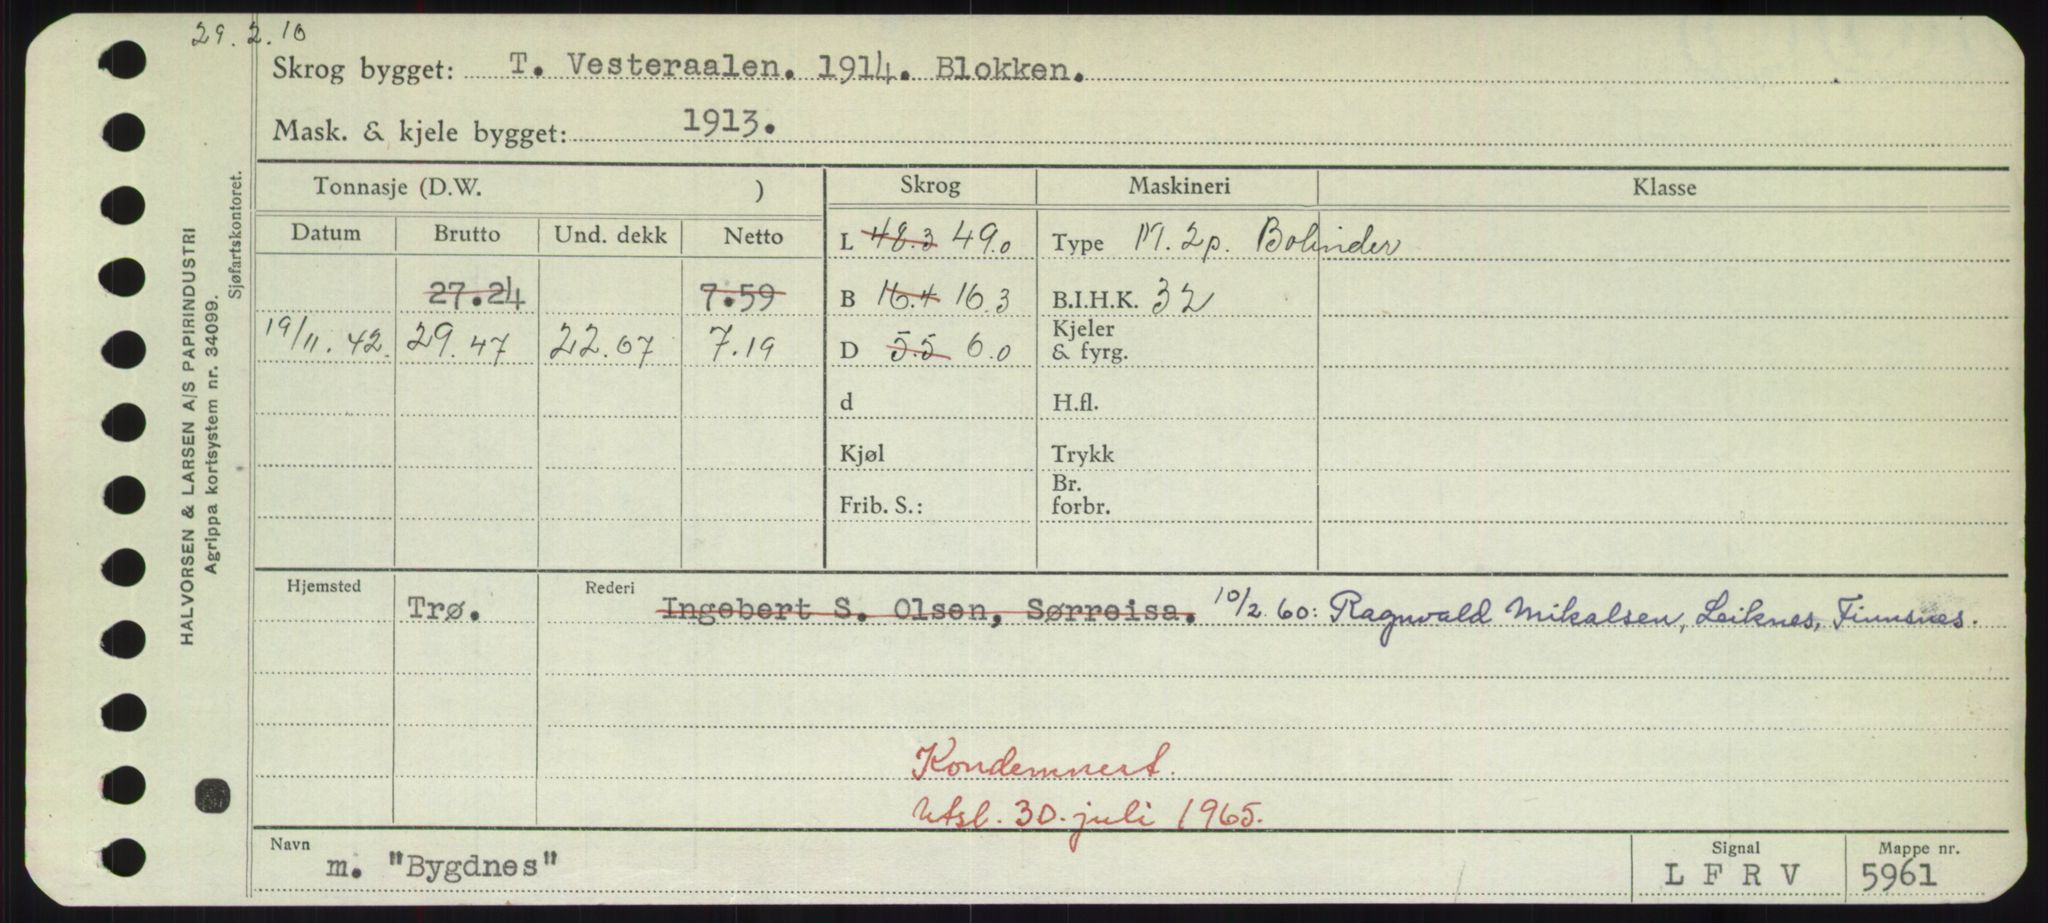 29.2.10
Skrog bygget: T. Vesteraalen. 1914. Blokken.
Mask. & kjele bygget: 1913.
HALVORSEN & LARSEN A/S PAPIRINDUSTRI
Agrippa kortsystem nr. 34099.
Sjøfartskontoret.
Tonnasje (D.W. ) Skrog Maskineri Klasse
Datum Brutto Und. dekk Netto
L 48.3 49.0 Type M. 2p. Bolinder
27.24 7.59 B 16.4 16.3 B.I.H.K. 32
19/11.42. 29.47 22.07 7.19 D 5.5 6.0 Kjeler & fyrg.
d H.fl.
Kjøl Trykk
Frib. S.: Br. forbr.
Hjemsted Rederi
Trø. Ingebert S. Olsen, Sørreisa. 10/2.60: Ragnvald Mikalsen, Leiknes, Finnsnes.
Kondemnert.
Utsl. 30. juli 1965.
Navn Signal Mappe nr.
m. "Bygdnes" L F R V 5961